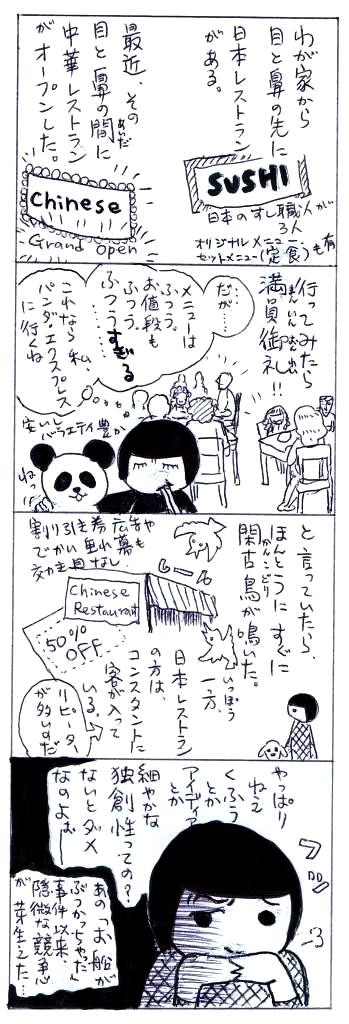 わが家から
目と鼻の先に
日本レストラン
がある。
SUSHI
日本のすし職人が
3人
オリジナルメニュー
セットメニュー(定食)も有
最近、その
目と鼻の間に
あいだ
中華レストラン
がオープンした。
Chinese
Grand Open
行ってみたら
満員御礼!!
まんいんおんれい
だが……
メニューは
ふつう。
お値段も
ふつう。
ふつうすぎる
……
これなら私、
パンダ・エクスプレス
に行くね
安いし
バラエティ豊か
ねっ
と言っていたら、
ほんとうにすぐに
閑古鳥が鳴いた。
かんこどり
割引き券広告や
でかい垂れ幕も
効き目なし
Chinese
Restaurant
50%
OFF
一方、
いっぽう
日本レストラン
の方は、
コンスタントに
客が入って
いる。
リピーター
が多いのだ
やっぱり
ねえ
くふう
とか
アイディア
とか
細やかな
独創性っての?
ないとダメ
なのよね
フッ
あの「お船が
ぶつかっちゃだ」
事件以来、
隠微な競争心
が芽生えた…